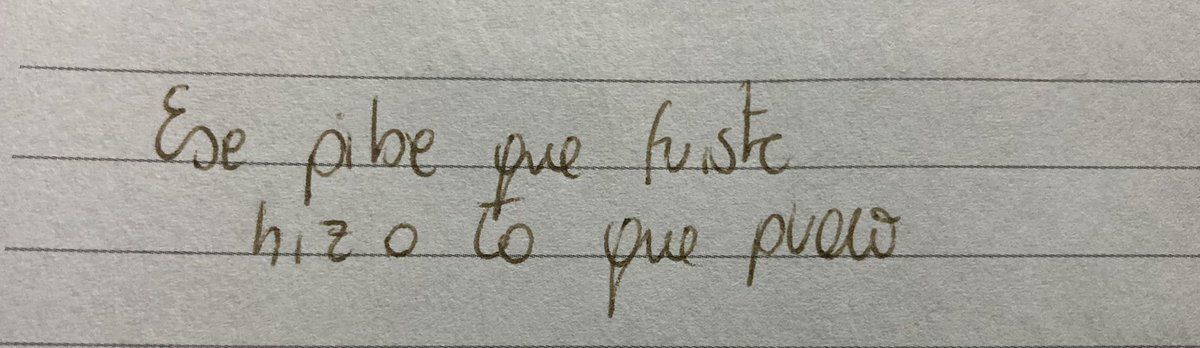 Ese pibe que fuiste
hizo lo que pudo